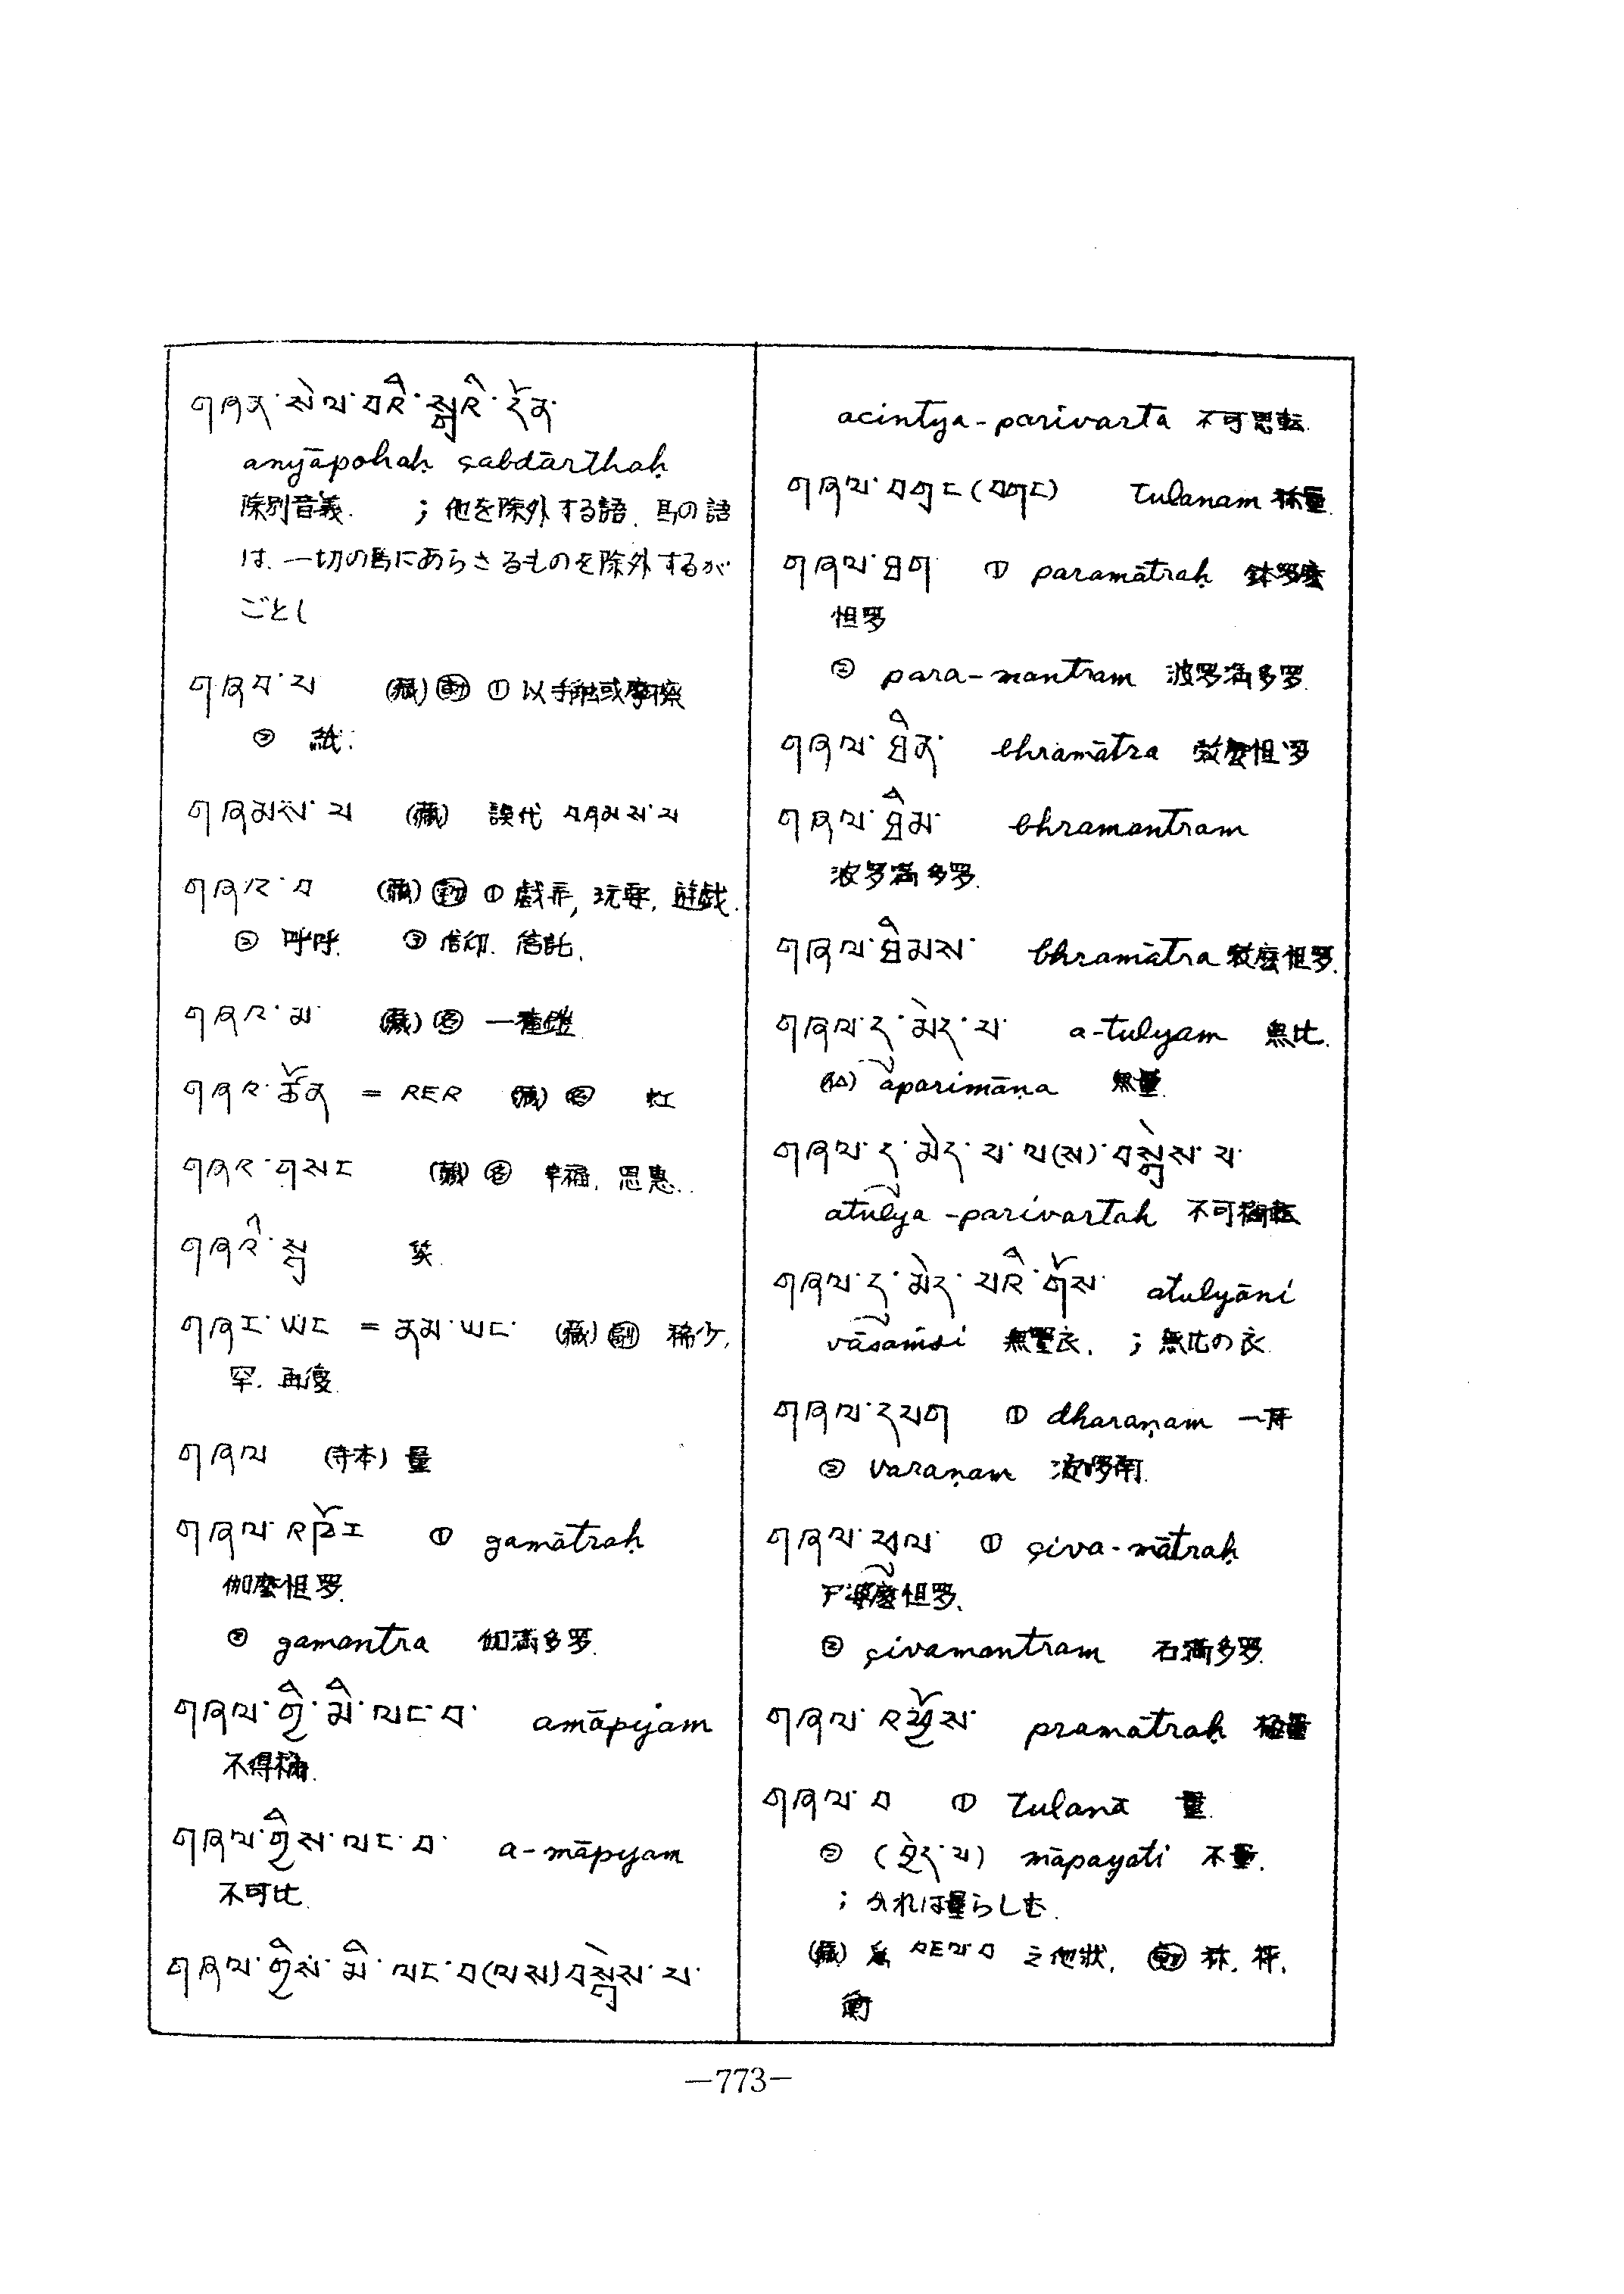 གཞན་སེལ་བའི་སྒྲའི་དོན་
anyāpohaḥ çabdārthaḥ
除別音義. ；他を除外する語. 馬の語
は. 一切の馬にあらさるものを除外するが
ごとし
གཞབ་པ (藏) 動 ① 以手触或摩擦
② 舐.
གཞམས་པ (藏) 誤代 བཤམས་པ
གཞར་བ (藏) 動 ① 戯弄, 玩耍. 遊戯.
② 呼呼. ③ 信仰. 信託.
གཞར་མ (藏) 名 一種
གཞར་ཚོན = (藏) 名 虹
གཞར་གསང (藏) 名 幸福. 恩惠.
གཞའི་སྒྲ
གཞར་ཡང = ནམ་ཡང་ (藏) 副 稀少.
罕. 再復.
གཞལ (寺本) 量
གཞལ་འཁོར ① gamātraḥ
伽麼怛罗.
② gamantra 伽滿多罗.
གཞལ་གྱི་མི་ལང་བ་ amāpyam
不得稱.
གཞལ་གྱིས་ལང་བ་ a-māpyam
不可比.
གཞལ་གྱིས་མི་ལང་བ(ལས)བསྒྲེས་པ་
—773—
acintya-parivarta 不可思転.
གཞལ་བགྲང(བགང) tulanam 称量.
གཞལ་ཐག ① paramātraḥ 鉢罗麼
怛罗
② para-mantram 波罗滿多罗.
bhramātra 麼怛罗
bhramantram
波罗滿多罗.
bhramātra 麼怛罗.
གཞལ་དུ་མེད་པ་ a-tulyam 無比.
aparimāṇa 無量.
གཞལ་དུ་མེད་པ་ལ(ས)་བསྒྲེས་པ་
atulya-parivartaḥ 不可稱転
གཞལ་དུ་མེད་པའི་གོས་ atulyāni
vāsaṁsi 無量衣. ；無比の衣.
གཞལ་དཔག ① dharaṇam 一
② varaṇam 波啰
གཞལ་ཕུལ་ ① çiva-mātraḥ
尸婆麼怛罗.
② çivamantram 石滿多罗.
གཞལ་འཕྱོས་ pramātraḥ 極量
གཞལ་བ ① tulanā 量.
② (བྱེད་པ) māpayati 不量.
；かれは量らしむ.
(藏) 為 འཇལ་བ 之他狀. 動 称. 秤.
衡